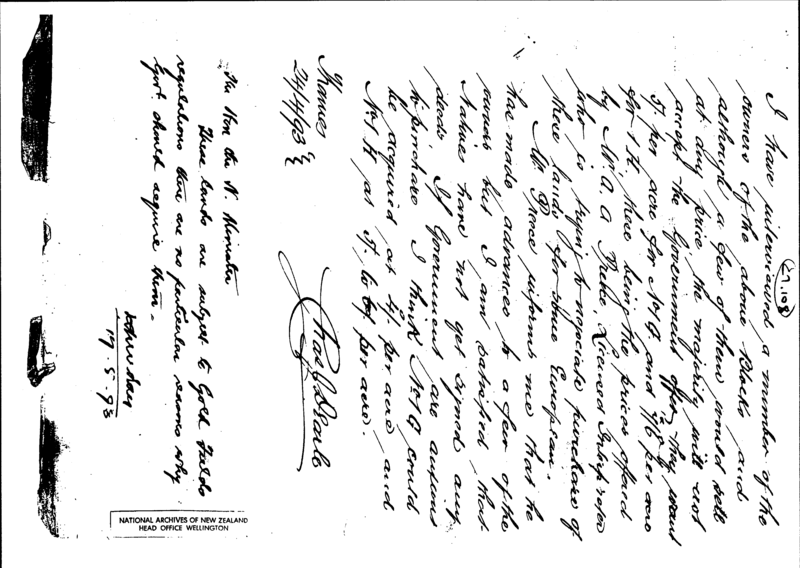 27.108
I have interviewed a number of the
owners of the above Blocks, and
although a few of them would sell
at any price, the majority will not
accept the Government offer, they want
5/. per acre for No 1G and 7/6 per acre
for 1 H, these being the prices offered
by Mr. A. A. Licensed Interpreter
who is trying to negociate purchase of
these lands for some European.
Mr. informs me that he
has made advances to a few of the
owners but I am satisfied that
Natives have not yet signed any
deeds. If Government are anxious
to purchase I think No 1G could
be acquired at 4/. per acre and
No 1 H at 5/. to per acre.
Thames
24/4/93
The Hon the N. Minister
These lands are subject to Gold Fields
regulations there are no particular reasons why
Govt. should acquire them.
17.5.93
NATIONAL ARCHIVES OF NEW ZEALAND
HEAD OFFICE WELLINGTON